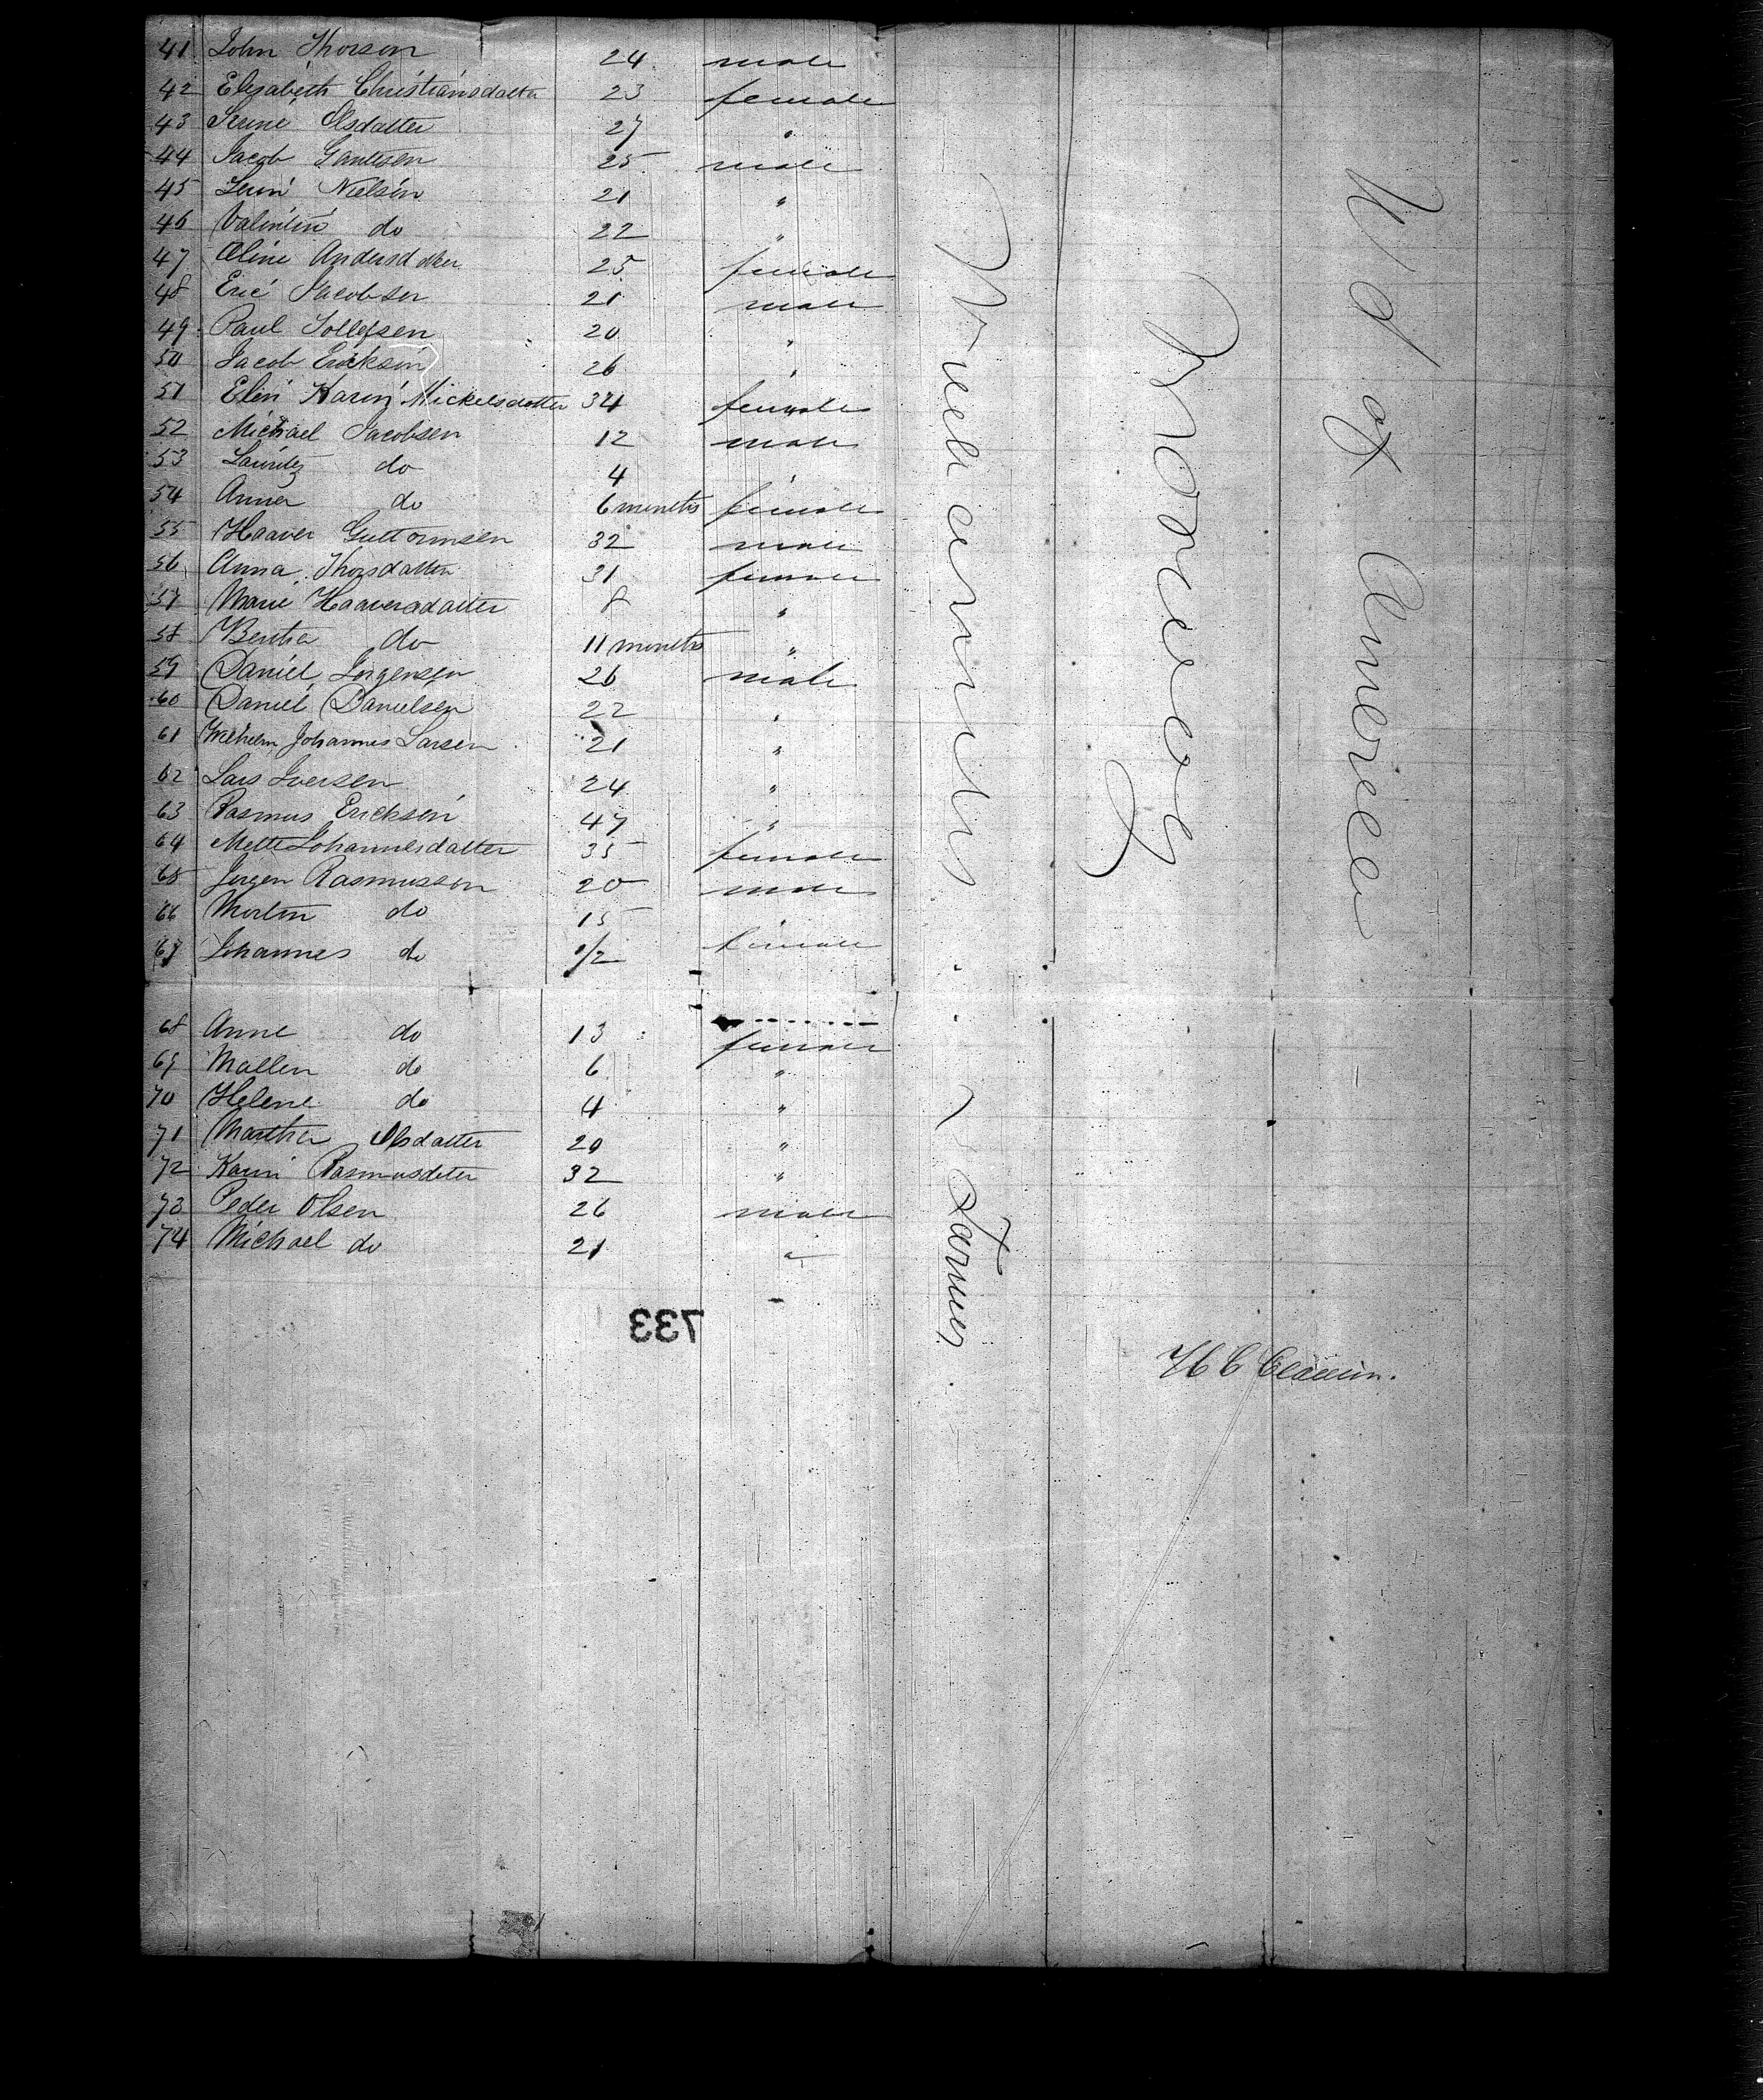 41 John Thorson 24 male
42 Elisabeth Christiansdatter 23 female
43 Olsdatter 27 "
44 Jacob 25 male
45 Nielsen 21 "
46 Valentin do 22 "
47 Oline Andersdatter 25 female
48 Eric Jacobsen 21 male
49 Paul Tollefsen 20 "
50 Jacob Ericksen 26 "
51 Elen Karin Mickelsdatter 34 female
52 Michael Jacobsen 12 male
53 Lauritz do 4 "
54 Anna do 6 months female
55 Haaver Guttormsen 32 male
56 Anna Thorsdatter 31 female
57 Marie Haaversdatter 8 "
58 Bertha do 11 months "
59 Daniel Jorgensen 26 male
60 Daniel Danielsen 22 "
61 Wilhelm Johannes Larsen 21 "
62 Lars Iversen 24 "
63 Rasmus Ericksen 47 "
64 Mette Johannesdatter 35 female
65 Jorgen Rasmussen 20 male
66 Morten do 15 "
67 Johannes do 1/2 female
68 Anne do 13 female
69 Mallen do 6 "
70 Helene do 4 "
71 Martha Olsdatter 20 "
72 Karen Rasmusdatter 32 "
73 Peder Olsen 26 male
74 Michael do 21 "
Mechanics & Farmers
Norway
U S of America
733
H C